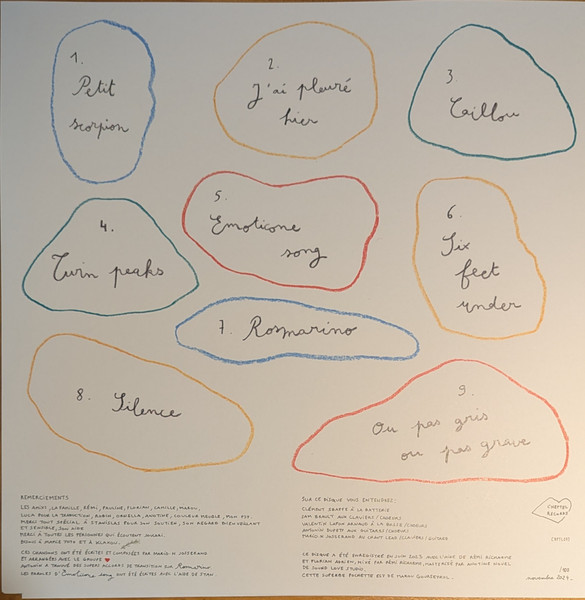 1.
Petit
scorpion
2.
J'ai pleuré
hier
3
Caillou
4.
Twin peaks
5.
Emoticone
song
6.
Six
feet
under
7. Rosmarino
8. Silence
9.
Ou pas gris
ou pas grave
REMERCIEMENTS
LES AMIS, LA FAMILLE, RÉMI, PAULINE, FLORIAN, CAMILLE, MANON,
LUCA POUR LA TRADUCTION, ROBIN,
MERCI TOUT SPÉCIAL À STANISLAS POUR SON SOUTIEN, SON REGARD BIENVEILLANT
ET SENSIBLE, SON AIDE
MERCI À TOUTES LES PERSONNES QUI ÉCOUTENT
CES CHANSONS ONT ÉTÉ ÉCRITES ET COMPOSÉES PAR
ET ARRANGÉES AVEC LE GROUPE
ANTONIN A TROUVÉ DES SUPERS ACCORDS DE TRANSITION SUR Rosmarino
LES PAROLES D'Emoticone song ONT ÉTÉ ÉCRITES AVEC L'AIDE DE
SUR CE DISQUE VOUS ENTENDREZ:
CLÉMENT À LA BATTERIE
SAM AUX CLAVIERS / CHOEURS
VALENTIN À LA BASSE / CHOEURS
ANTONIN AUX GUITARES / CHOEURS
AU CHANT LEAD / CLAVIERS / GUITARE
LE DISQUE A ÉTÉ ENREGISTRÉ EN JUIN 2023 AVEC L'AIDE DE RÉMI
ET FLORIAN ADRIEN, MIXÉ PAR RÉMI MASTERISÉ PAR
DE LOVE STUDIO,
CETTE SUPERBE POCHETTE EST DE MANON
RECORDS
novembre 2024.